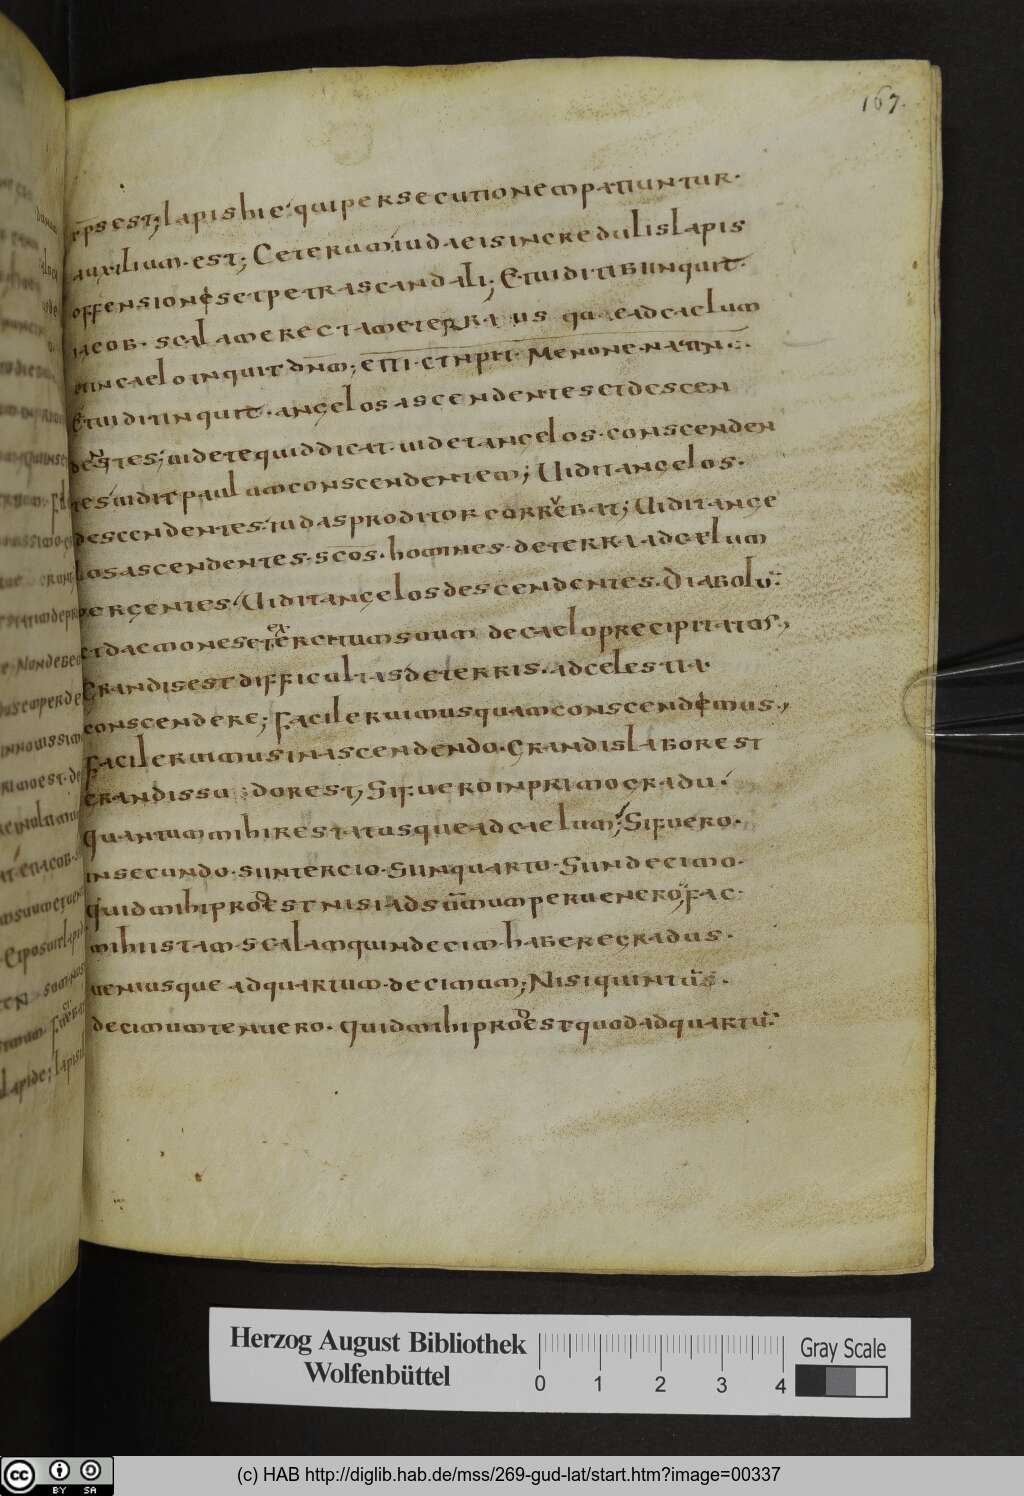 167.
xp̄s est; lapis hic qui persecutionem patiuntur.
auxilium. est; Ceterum iudaeis incredulis lapis
offensionis et petra scandali; Et uidit ibi inquit.
iacob. scalam erectam et erra us quae ad caelum
inquit dn̄m;
Et uidit inquit. angelos ascendentes et descen
dentes; uidete quid dicat. uidet angelos. conscenden
tes uidit paulum conscendentem; Uidit angelos.
descendentes iudas proditor correbat; Uidit ange
los ascendentes. sc̄os. homines. de terra ad caelum
pergentes; Uidit angelos descendentes. Diabolū
et daemones et exercitum suum de caelo precipitatos;
Grandis est difficultas de terris. ad celestia.
conscendere; Facile ruimus quam conscendimus,
Facile ruimus in ascendendo. Grandis labor est
grandis sudor est; Si uero in primo gradu.
quantum mihi restat usque ad caelum; Si uero.
in secundo. si in tercio. si in quarto. si in decimo.
quid mihi prodest nisi ad sum̄um peruenero; fac.
mihi istam scalam quindecim. habere gradus.
ueni usque ad quartum. decimum; Nisi quintū.
decimum tenuero. quid mihi prodest quod ad quartū.
Herzog August Bibliothek
Wolfenbüttel
0 1 2 3 4
Gray Scale
cc BY SA
(c) HAB http://diglib.hab.de/mss/269-gud-lat/start.htm?image=00337